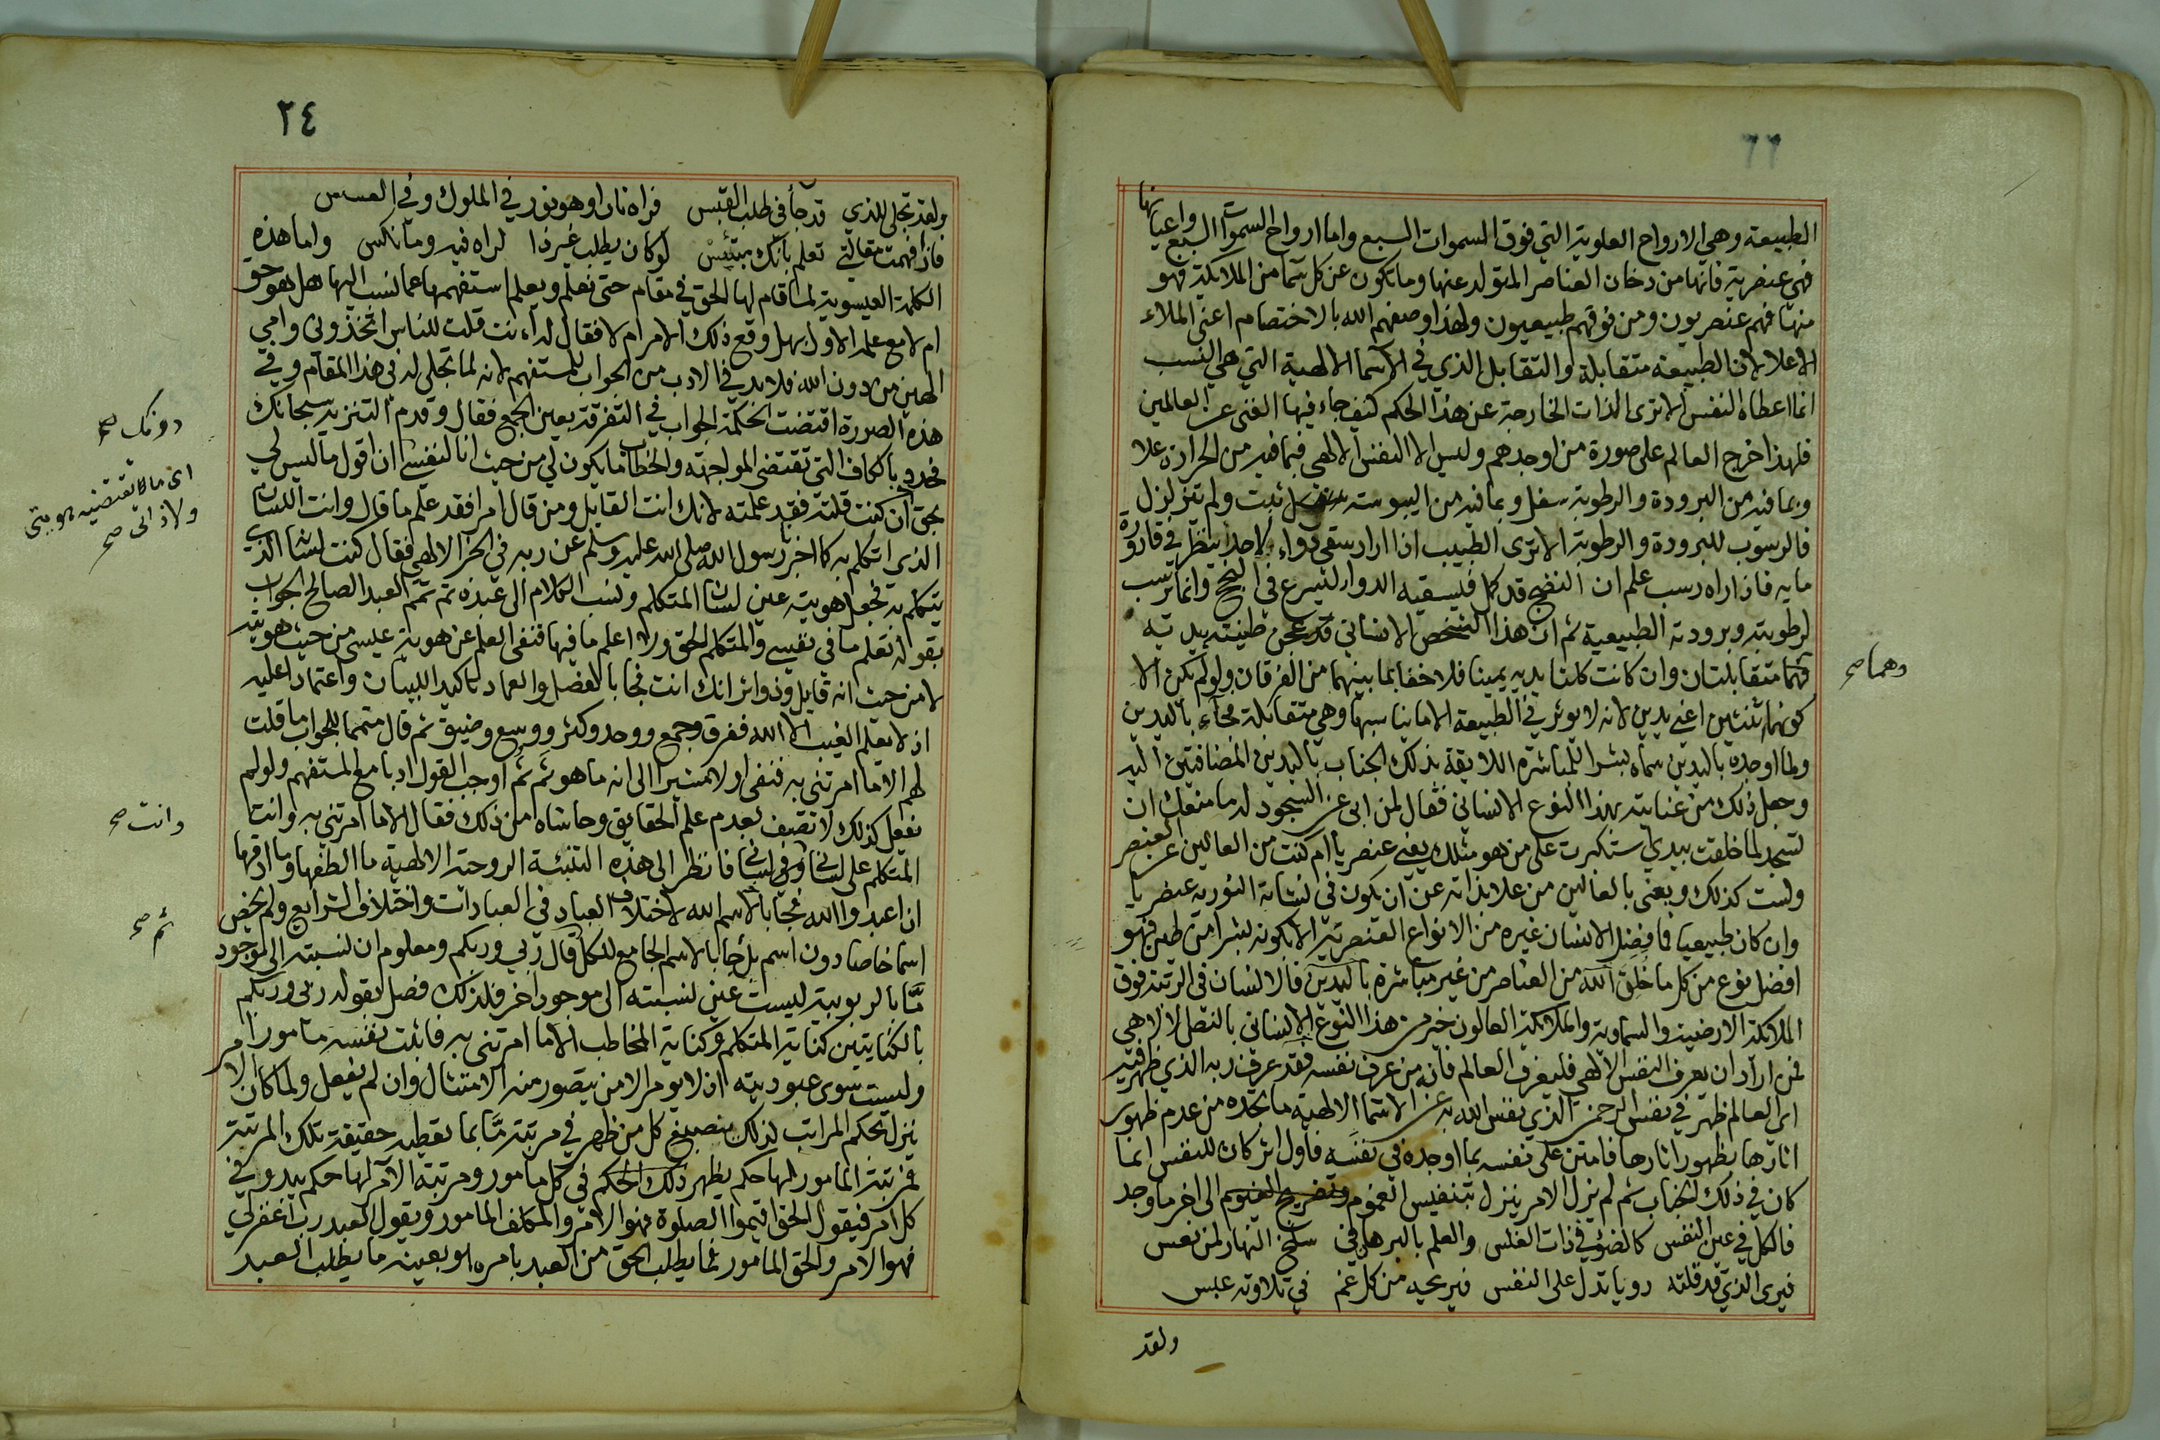 الطبيعة وهي الارواح العلوية التي فوق السموات السبع واما ارواح السموات السبع واعيانها
فهي عنصرية فانها من دخان العناصر المتولد عنها وما تكون عن كل سما من الملائكة فهو
منها فهم عنصريون ومن فوقهم طبيعيون ولهذا وصفهم الله بالاختصام اعنى الملاء
الاعلا لان الطبيعة متقابلة والتقابل الذي في الاسما الالهية التي هي النسب
انما اعطاه النفس الا ترى الذات الخارجة عن هذا الحكم كيف جاء فيها الغنى عن العالمين
فلهذا خرج العالم على صورة من اوجدهم وليس الا النفس الالهي فبما فيه من الحرارة علا
وبما فيه من البرودة والرطوبة سفل وبما فيه من اليبوسة ثبت ولم يتزلزل
فالرسوب للبرودة والرطوبة الا ترى الطبيب اذا اراد سقي دواء لاحد ينظر في قارورة
مايه فاذا راه رسب علم ان النضج قد كمل فيسقيه الدوا ليسرع في النجح وانما رسب
لرطوبته وبرودته الطبيعية ثم ان هذا الشخص الانساني قد عجن طينته بيديه
وهما صح
فهما متقابلتان وان كانت كلتا يديه يمينا فلا خفا بما بينهما من الفرقان ولو لم يكن الا
كونهما اثنتين اعني يدين لانه لا يوثر في الطبيعة الا ما يناسبها وهي متقابلة فجاء باليدين
ولما اوجده باليدين سماه بشرا للمباشرة اللايقة بذلك الجناب باليدين المضافتين اليه
وجعل ذلك من عنايته بهذا النوع الانساني فقال لمن ابى عن السجود له ما منعك ان
تسجد لما خلقت بيدي استكبرت على من هو مثلك يعني عنصريا ام كنت من العالين عن العنصر
ولست كذلك ويعنى بالعالين من علا بذاته عن ان يكون في نشاته النورية عنصريا
وان كان طبيعيا فما فضل الانسان غيره من الانواع العنصرية الا بكونه بشرا من طين فهو
افضل نوع من كل ما خلق الله من العناصر من غير مباشرة باليدين فالانسان في الرتبة فوق
الملائكة الارضية والسماوية والملائكة العالون خير من هذا النوع الانساني بالنص الالهي
فمن اراد ان يعرف النفس الالهي فليعرف العالم فانه من عرف نفسه فقد عرف ربه الذي ظهر فيه
اي العالم ظهر في نفس الرحمن الذي نفس الله به عن الاسما الالهية ما تجده من عدم ظهور
اثارها بظهور اثارها فامتن على نفسه بما اوجده في نفسه فاول اثر كان للنفس انما
كان في ذلك الجناب ثم لم يزل الامر ينزل بتنفيس العموم الى اخر ما وجد
فالكل في عين النفس كالضوء في ذات الغلس والعلم بالبرهان في سلخ النهار لمن نعس
فيرى الذي قد قلته رويا تدل على النفس فيريحه من كل غم في تلاوته عبس
ولقد
٢٤
ولقد تجلى للذي قد جأ في طلب القبس فراه نارا وهو نور في الملوك وفي العسس
فاذا فهمت مقالتي تعلم بانك مبتئس لو كان يطلب غير ذا لراه فيه وما نكس واما هذه
الكلمة العيسوية لما قام لها الحق في مقام حتى نعلم ويعلم استفهمها عما نسب اليها هل هو حق
ام لا مع علمه الاول بهل وقع ذلك الامر ام لا فقال له اءنت قلت للناس اتخذوني وامي
الهين من دون الله فلا بد في الادب من الجواب للمستفهم لانه لما تجلى له في هذا المقام وفي
هذه الصورة اقتضت الحكمة الجواب في التفرقة بعين الجمع فقال وقدم التنزيه سبحانك
فحدد بالكاف التي تقتضي المواجهة والخطاب ما يكون لي من حيث انا لنفسي ان اقول ما ليس لي
دونك صح
اي ما لا يقتضيه هويتي
ولا ذاتي صح
بحق ان كنت قلته فقد علمته لانك انت القايل ومن قال امرا فقد علم ما قال وانت اللسان
الذي اتكلم به كما اخبرنا رسول الله صلى الله عليه وسلم عن ربه في الخبر الالهي فقال كنت لسانه الذي
يتكلم به فجعل هويته عين لسان المتكلم ونسب الكلام الى عبده ثم تمم العبد الصالح الجواب
بقوله تعلم ما في نفسي والمتكلم الحق ولا اعلم ما فيها فنفى العلم عن هوية عيسى من حيث هويته
لا من حيث انه قايل وذو اثر انك انت فجا بالفصل والعماد تاكيدا للبيان واعتمادا عليه
اذ لا يعلم الغيب الا الله ففرق وجمع ووحد وكثر ووسع وضيق ثم قال متمما للجواب ما قلت
لهم الا ما امرتني به فنفى اولا مشيرا الى انه ما هو ثم ثم اوجب القول ادبا مع المستفهم ولو لم
يفعل كذلك لاتصف بعدم علم الحقايق وحاشاه من ذلك فقال الا ما امرتني به وانت
وانت صح
المتكلم على لساني وفي لساني فانظر الى هذه التنبئة الروحية الالهية ما الطفها وما ادقها
ان اعبدوا الله فجا بالاسم الله لاختلاف العباد في العبادات واختلاف الشرايع ولم يخص
ثم صح
اسما خاصا دون اسم بل جا بالاسم الجامع للكل قال ربي وربكم ومعلوم ان نسبته الى موجود
مّا بالربوبية ليست عين نسبته الى موجود اخر فلذلك فصل بقوله ربي وربكم
بالكنايتين كناية المتكلم وكناية المخاطب الا ما امرتني به فاثبت نفسه مامورا
وليست سوى عبوديته اذ لا يومر الا من يتصور منه الامتثال وان لم يفعل ولما كان الامر
ينزل بحكم المراتب لذلك ينصبغ كل من ظهر في مرتبة مّا بما يعطيه حقيقة تلك المرتبة
فمرتبة المامور لها حكم يظهر ذلك الحكم في كل مامور ومرتبة الامر لها حكم يبدو في
كل امر فيقول الحق اقيموا الصلوة فهو الامر والمكلف المامور ويقول العبد رب اغفر لي
فهو الامر والحق المامور فما يطلب الحق من العبد بامره هو بعينه ما يطلب العبد